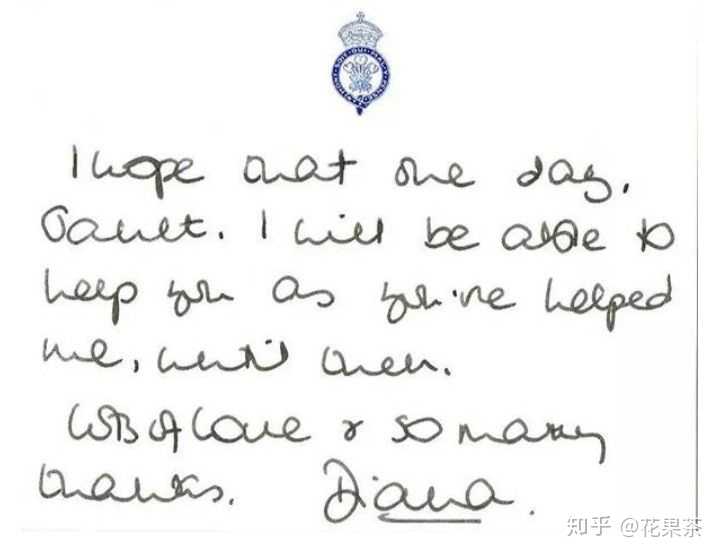 I hope that one day,
Janet. I will be able to
help you as you've helped
me, until then.
Lots of love & so many
thanks. Diana.
知乎 @花果茶